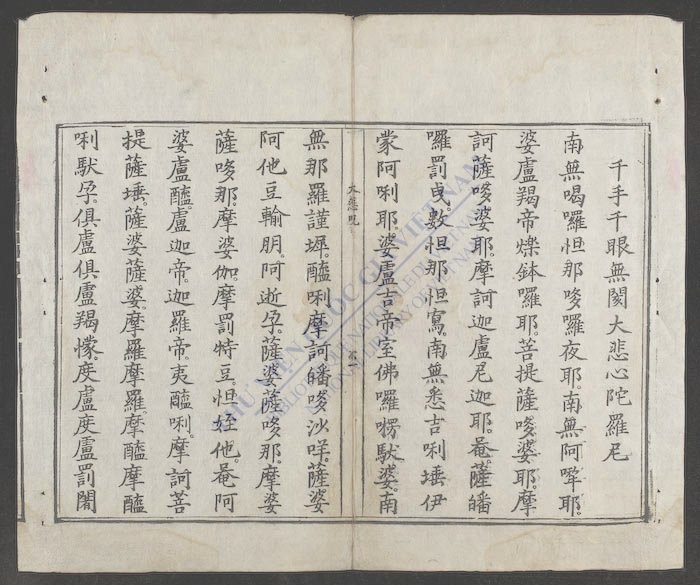 千手千眼無閡大悲心陀羅尼
南無喝囉怛那哆羅夜耶。南無阿耶。
婆盧羯帝爍鉢囉耶。菩提薩哆婆耶。摩
訶薩哆婆耶。摩訶迦盧尼迦耶。菴。薩皤
囉罰曳。數怛那怛寫。南無悉吉唎埵伊
蒙阿唎耶。婆盧吉帝室佛囉楞馱婆。南
大悲咒
無那羅謹墀。醯唎摩訶皤哆沙咩。薩婆
阿他豆輸朋。阿逝孕。薩婆薩哆那。摩婆
薩哆那。摩婆伽。摩罰特豆。怛姪他。菴。阿
婆盧醯。盧迦帝。迦羅帝。夷醯唎。摩訶菩
提薩埵。薩婆薩婆。摩羅摩羅。摩醯摩醯
唎馱孕。俱盧俱盧羯懞。度盧度盧罰闍
THƯ VIỆN QUỐC GIA VIỆT NAM
BIBLIOTHÈQUE NATIONALE DU VIETNAM
NATIONAL LIBRARY OF VIETNAM